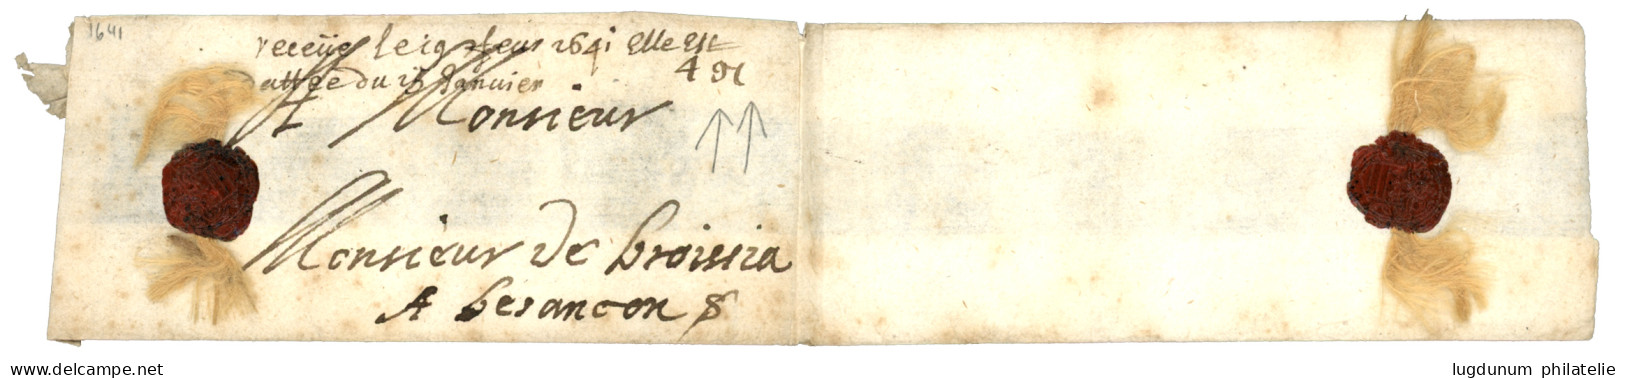 1641
receüe le 19 1641 Elle Est
dattée du 15 Janvier 4 91
A Monsieur
Monsieur de broissia
A besancon
delcampe.net
lugdunum philatelie